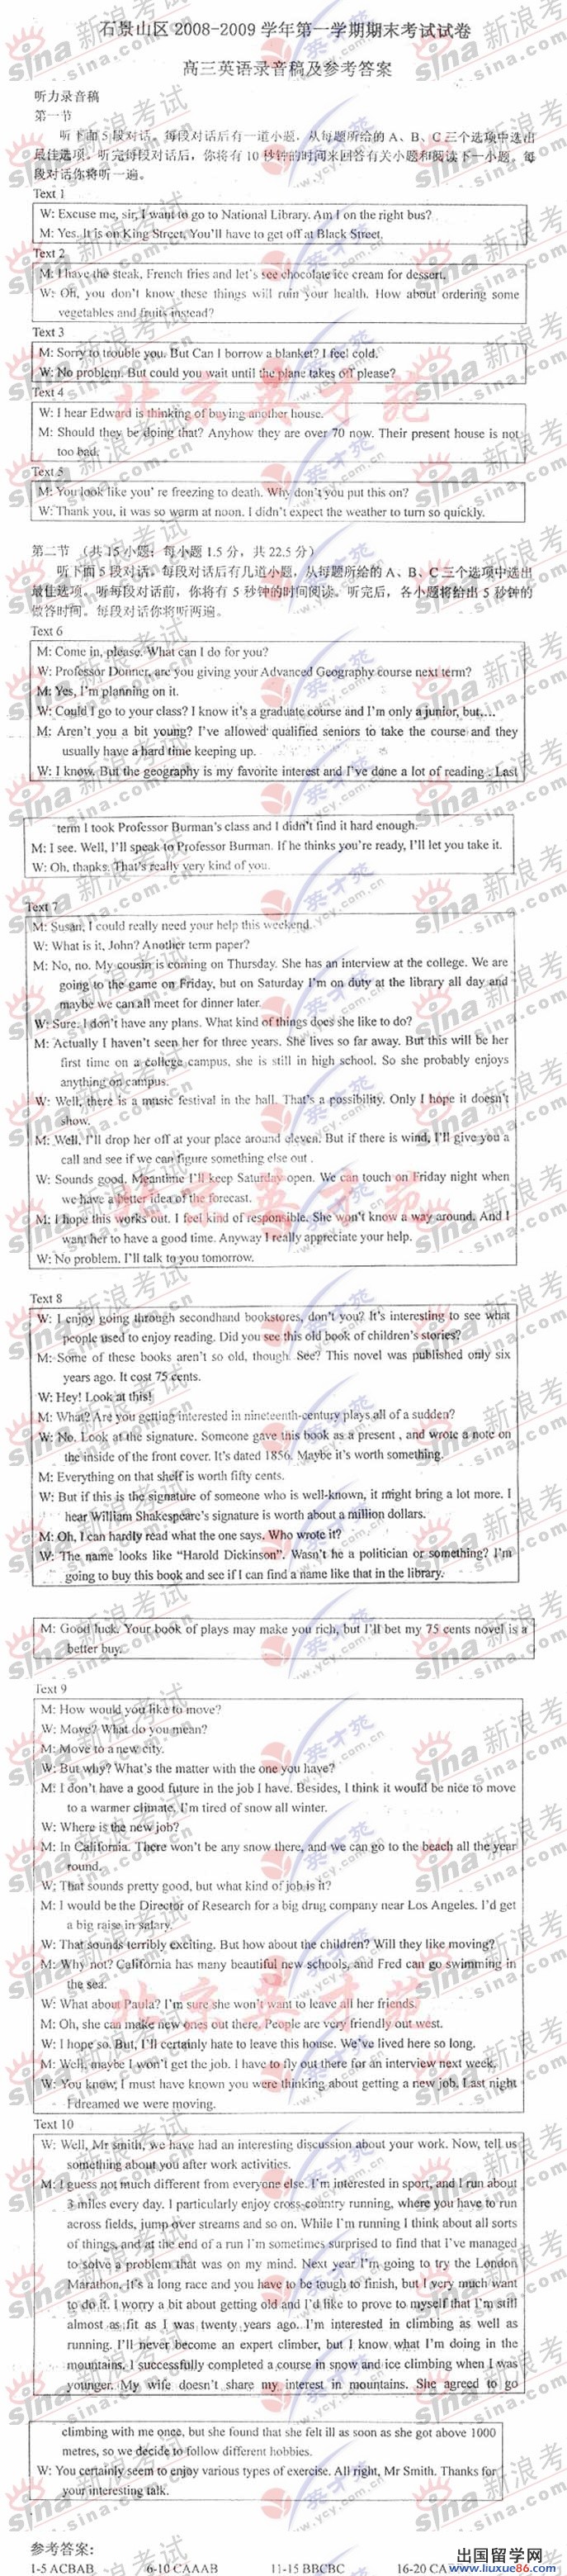 石景山区 2008-2009 学年第一学期期末考试试卷
高三英语录音稿及参考答案
听力录音稿
第一节
听下面 5 段对话。每段对话后有一道小题，从每题所给的 A、B、C 三个选项中选出
最佳选项。听完每段对话后，你将有 10 秒钟的时间来回答有关小题和阅读下一小题。每
段对话你将听一遍。
Text 1
W: Excuse me, sir, I want to go to National Library. Am I on the right bus?
M: Yes. It is on King Street. You'll have to get off at Black Street.
Text 2
M: I have the steak, French fries and let's see chocolate ice cream for dessert.
W: Oh, you don't know these things will ruin your health. How about ordering some
vegetables and fruits instead?
Text 3
M: Sorry to trouble you. But Can I borrow a blanket? I feel cold.
W: No problem. But could you wait until the plane takes off please?
Text 4
W: I hear Edward is thinking of buying another house.
M: Should they be doing that? Anyhow they are over 70 now. Their present house is not
too bad.
Text 5
M: You look like you' re freezing to death. Why don't you put this on?
W: Thank you, it was so warm at noon. I didn't expect the weather to turn so quickly.
第二节 （共 15 小题；每小题 1.5 分，共 22.5 分）
听下面 5 段对话。每段对话后有几道小题，从每题所给的 A、B、C 三个选项中选出
最佳选项。听每段对话前，你将有 5 秒钟的时间阅读。听完后，各小题将给出 5 秒钟的
做答时间。每段对话你将听两遍。
Text 6
M: Come in, please. What can I do for you?
W: Professor Donner, are you giving your Advanced Geography course next term?
M: Yes, I'm planning on it.
W: Could I go to your class? I know it's a graduate course and I'm only a junior, but....
M: Aren't you a bit young? I've allowed qualified seniors to take the course and they
usually have a hard time keeping up.
W: I know. But the geography is my favorite interest and I've done a lot of reading . Last
term I took Professor Burman's class and I didn't find it hard enough.
M: I see. Well, I'll speak to Professor Burman. If he thinks you're ready, I'll let you take it.
W: Oh, thanks. That's really very kind of you.
Text 7
M: Susan, I could really need your help this weekend.
W: What is it, John? Another term paper?
M: No, no. My cousin is coming on Thursday. She has an interview at the college. We are
going to the game on Friday, but on Saturday I'm on duty at the library all day and
maybe we can all meet for dinner later.
W: Sure. I don't have any plans. What kind of things does she like to do?
M: Actually I haven't seen her for three years. She lives so far away. But this will be her
first time on a college campus, she is still in high school. So she probably enjoys
anything on campus.
W: Well, there is a music festival in the hall. That's a possibility. Only I hope it doesn't
show.
M: Well, I'll drop her off at your place around eleven. But if there is wind, I'll give you a
call and see if we can figure something else out .
W: Sounds good. Meantime I'll keep Saturday open. We can touch on Friday night when
we have a better idea of the forecast.
M: I hope this works out. I feel kind of responsible. She won't know a way around. And I
want her to have a good time. Anyway I really appreciate your help.
W: No problem. I'll talk to you tomorrow.
Text 8
W: I enjoy going through secondhand bookstores, don't you? It's interesting to see what
people used to enjoy reading. Did you see this old book of children's stories?
M: Some of these books aren't so old, though. See? This novel was published only six
years ago. It cost 75 cents.
W: Hey! Look at this!
M: What? Are you getting interested in nineteenth-century plays all of a sudden?
W: No. Look at the signature. Someone gave this book as a present , and wrote a note on
the inside of the front cover. It's dated 1856. Maybe it's worth something.
M: Everything on that shelf is worth fifty cents.
W: But if this is the signature of someone who is well-known, it might bring a lot more. I
hear William Shakespeare's signature is worth about a million dollars.
M: Oh, I can hardly read what the one says. Who wrote it?
W: The name looks like "Harold Dickinson". Wasn't he a politician or something? I'm
going to buy this book and see if I can find a name like that in the library.
M: Good luck. Your book of plays may make you rich, but I'll bet my 75 cents novel is a
better buy.
Text 9
M: How would you like to move?
W: Move? What do you mean?
M: Move to a new city.
W: But why? What's the matter with the one you have?
M: I don't have a good future in the job I have. Besides, I think it would be nice to move
to a warmer climate. I'm tired of snow all winter.
W: Where is the new job?
M: In California. There won't be any snow there, and we can go to the beach all the year
round.
W: That sounds pretty good, but what kind of job is it?
M: I would be the Director of Research for a big drug company near Los Angeles. I'd get
a big raise in salary.
W: That sounds terribly exciting. But how about the children? Will they like moving?
M: Why not? California has many beautiful new schools, and Fred can go swimming in
the sea.
W: What about Paula? I'm sure she won't want to leave all her friends.
M: Oh, she can make new ones out there. People are very friendly out west.
W: I hope so. But, I'll certainly hate to leave this house. We've lived here so long.
M: Well, maybe I won't get the job. I have to fly out there for an interview next week.
W: You know, I must have known you were thinking about getting a new job. Last night
I dreamed we were moving.
Text 10
W: Well, Mr smith, we have had an interesting discussion about your work. Now, tell us
something about you after work activities.
M: I guess not much different from everyone else. I'm interested in sport, and I run about
3 miles every day. I particularly enjoy cross-country running, where you have to run
across fields, jump over streams and so on. While I'm running I think about all sorts
of things, and at the end of a run I'm sometimes surprised to find that I've managed
to solve a problem that was on my mind. Next year I'm going to try the London
Marathon. It's a long race and you have to be tough to finish, but I very much want
to do it. I worry a bit about getting old and I'd like to prove to myself that I'm still
almost as fit as I was twenty years ago. I'm interested in climbing as well as
running. I'll never become an expert climber, but I know what I'm doing in the
mountains. I successfully completed a course in snow and ice climbing when I was
younger. My wife doesn't share my interest in mountains. She agreed to go
climbing with me once, but she found that she felt ill as soon as she got above 1000
metres, so we decide to follow different hobbies.
W: You certainly seem to enjoy various types of exercise. All right, Mr Smith. Thanks for
your interesting talk.
参考答案:
1-5 ACBAB 6-10 CAAAB 11-15 BBCBC 16-20 CA
出国留学网
www.liuxue86.com